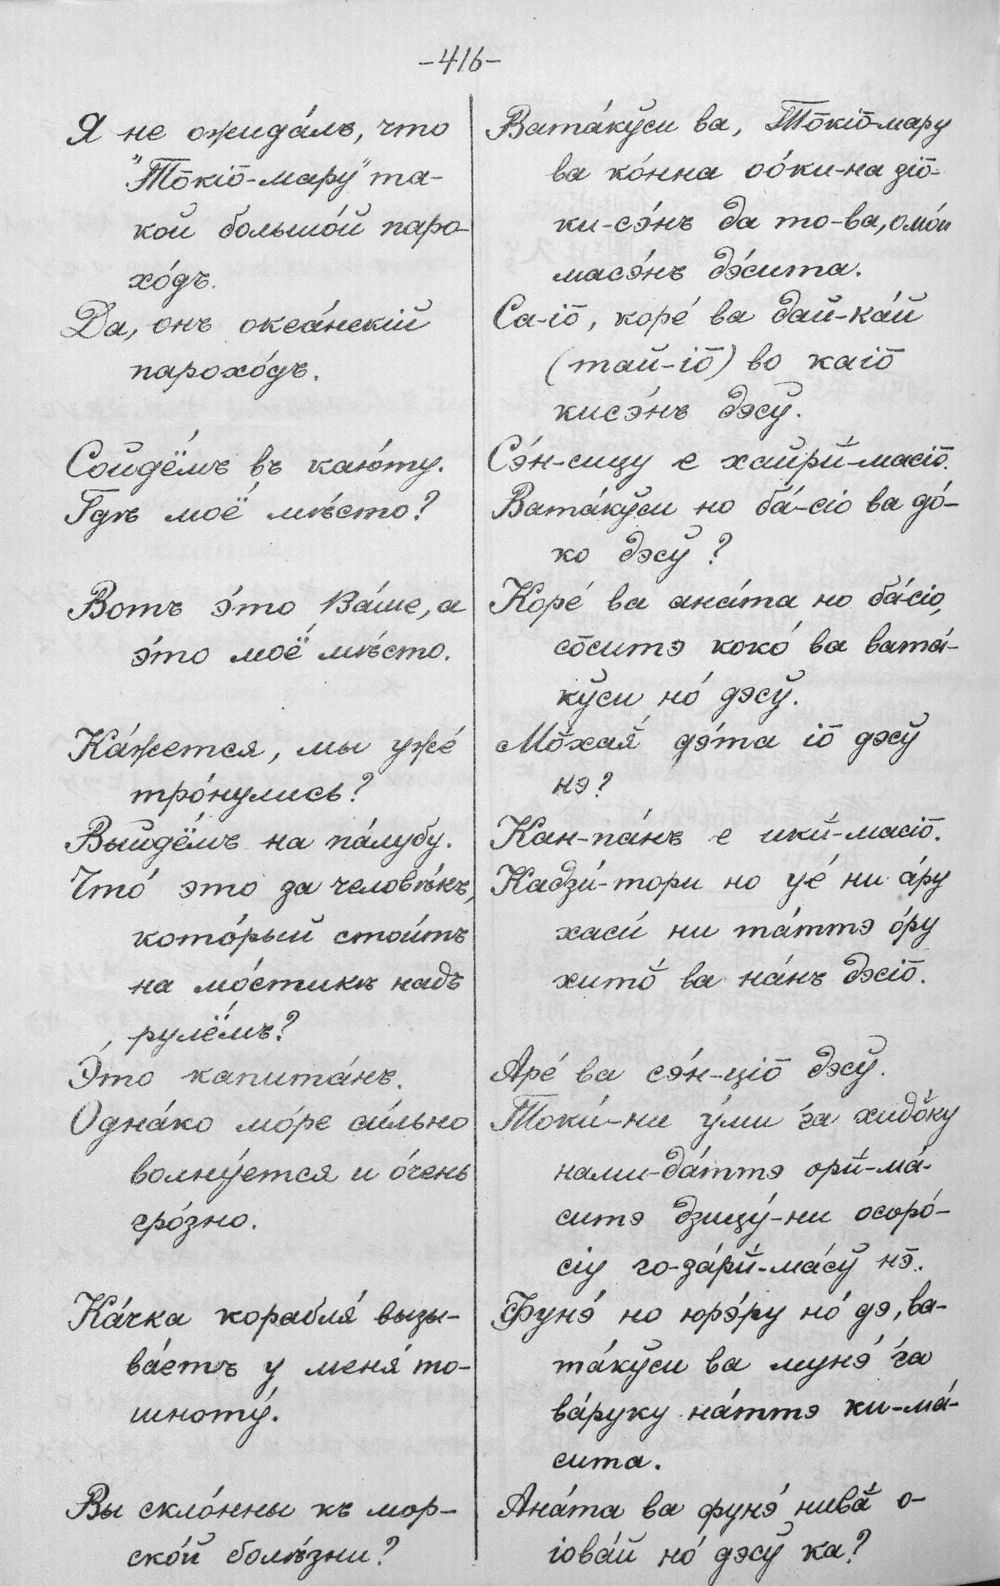 -416-
Я не ожида́лъ, что
"То̄кіо̄-мару" та-
кой большо́й паро-
хо́дъ.
Да, онъ океа́нскій
парохо́дъ.
Сойдёмъ въ каю́ту.
Гдѣ моё мѣ́сто?
Вотъ э́то Ва́ше, а
э́то моё мѣ́сто.
Ка́жется, мы уже́
тро́нулись?
Выйдёмъ на па́лубу.
Что́ это за человѣ́къ,
кото́рый стои́тъ
на мо́стикѣ надъ
рулёмъ?
Э́то капита́нъ.
Одна́ко мо́ре си́льно
волну́ется и о́чень
гро́зно.
Ка́чка корабля́ вызы-
ва́етъ у меня́ то-
шноту́.
Вы скло́нны къ мор-
ско́й болѣ́зни?
Вата́кўси ва, То̄кіо̄-мару
ва ко́нна оо́ки-на зіо̄-
ки-сэ́нъ да то-ва, омо́и
масэ́нъ дэ́сита.
Са-іо̄, коре́ ва дай-ка́й
(тай-іо̄) во каіо̄
кисэ́нъ дэсў.
Сэ́н-сицу е хайрй-масіо̄.
Вата́кўси но ба́-сіо ва до́-
ко дэсў?
Коре́ ва ана́та но ба́сіо,
со̄ситэ коко́ ва вата́-
кўси но́ дэсў.
Мо̄хая́ дэ́та іо̄ дэсў
нэ?
Кан-па́нъ е икй-масіо̄.
Кадзи́-тори но уе́ ни а́ру
хаси́ ни та́ттэ о́ру
хито́ ва на́нъ дэсіо̄.
Аре́ ва сэ́н-ціо̄ дэсў.
Токи́-ни у́ми га хидо́ку
нами-да́ттэ орй-ма́-
ситэ дзицу́-ни осоро́-
сіу го-за́рй-ма́сў нэ̄.
Фунэ́ но юрэ́ру но́ дэ, ва-
та́кўси ва мунэ́ га
ва́руку на́ттэ ки-ма́-
сита.
Ана́та ва фунэ́ нива о-
іова́й но́ дэсў ка?